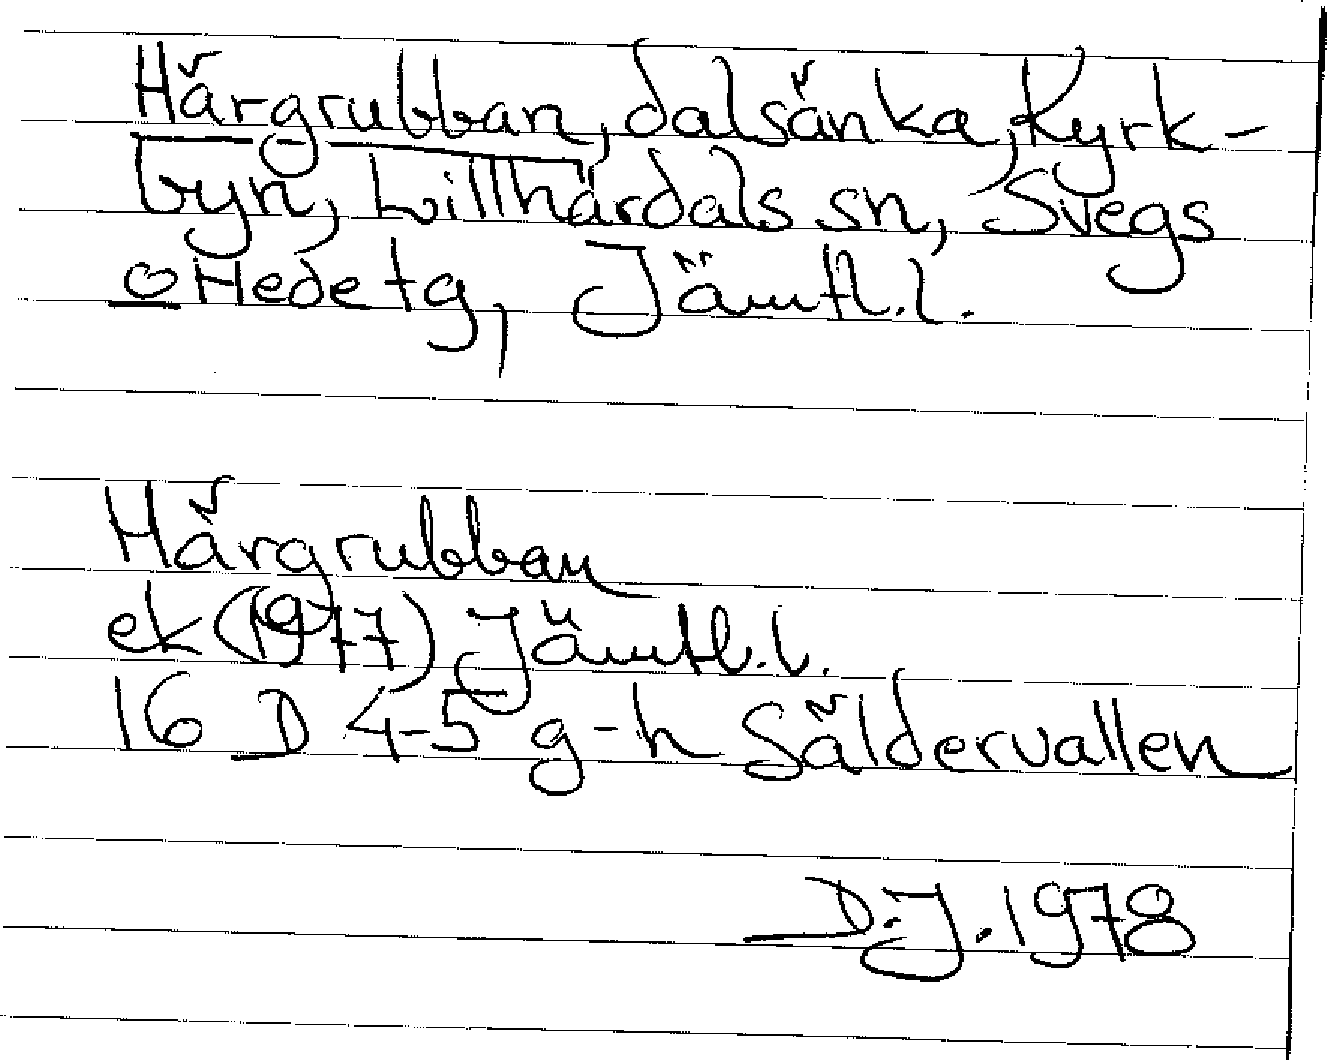 Härgrubban, dalsänka, Kyrk-
byn, Lillhärdals sn, Svegs
o Hede tg, Jämtl.l.
Härgrubban
ek (1977) Jämtl.l.
16 D 4-5 g-h Säldervallen
D.J. 1978